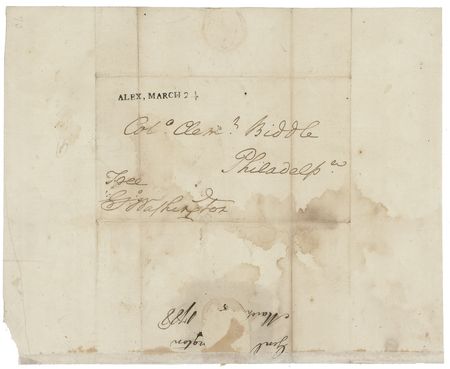 ALEX, MARCH 2
Colº Clemt Biddle
Philadelpª
Free
Gº Washington
Genl
ngton
March
1788